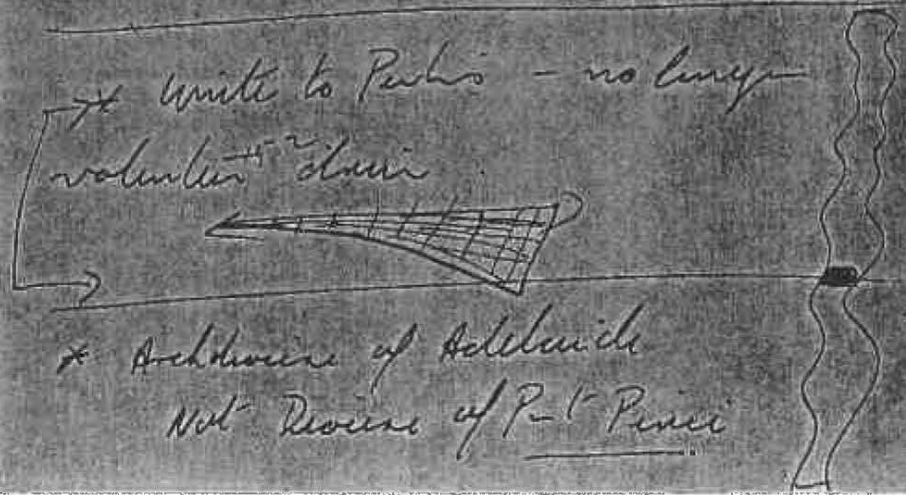 * write to Perkis - no longer
volunteer
* Archdiocese of Adelaide
Not Diocese of Port Pirie